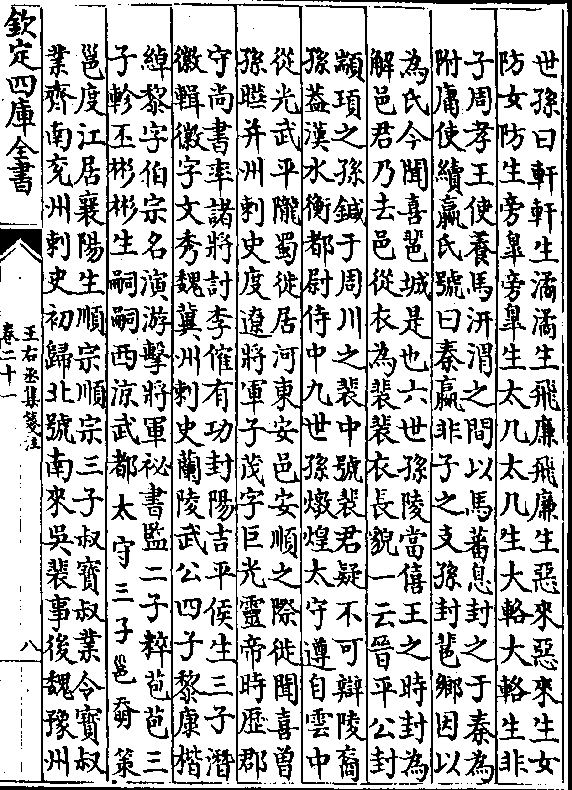 世孫曰軒軒生潏潏生飛廉飛廉生惡來惡來生女
防女防生旁臯旁臯生太几太几生大輅大輅生非
子周孝王使養馬汧渭之間以馬蕃息封之于秦為
附庸使續嬴氏號曰秦嬴非子之支孫封𨛬鄉因以
為氏今聞喜𨛬城是也六世孫陵當僖王之時封為
解邑君乃去邑從衣為裴裴衣長貌一云晉平公封
顓頊之孫鍼于周川之裴中號裴君疑不可辯陵裔
孫葢漢水衡都尉侍中九世孫燉煌太守遵自雲中
從光武平隴蜀徙居河東安邑安順之際徙聞喜曾
孫曄并州刺史度遼將軍子茂字巨光靈帝時歴郡
守尚書率諸將討李傕有功封陽吉平侯生三子潛
徽輯徽字文秀魏冀州刺史蘭陵武公四子黎康楷
綽黎字伯宗名演游擊將軍祕書監二子粹苞苞三
子軫丕彬彬生嗣嗣西涼武都太守三子邕奣策
邕度江居襄陽生順宗順宗三子叔寶叔業令寶叔
業齊南兖州刺史初歸北號南來吳裴事後魏豫州
欽定四庫全書
王右丞集箋注
卷二十一
八